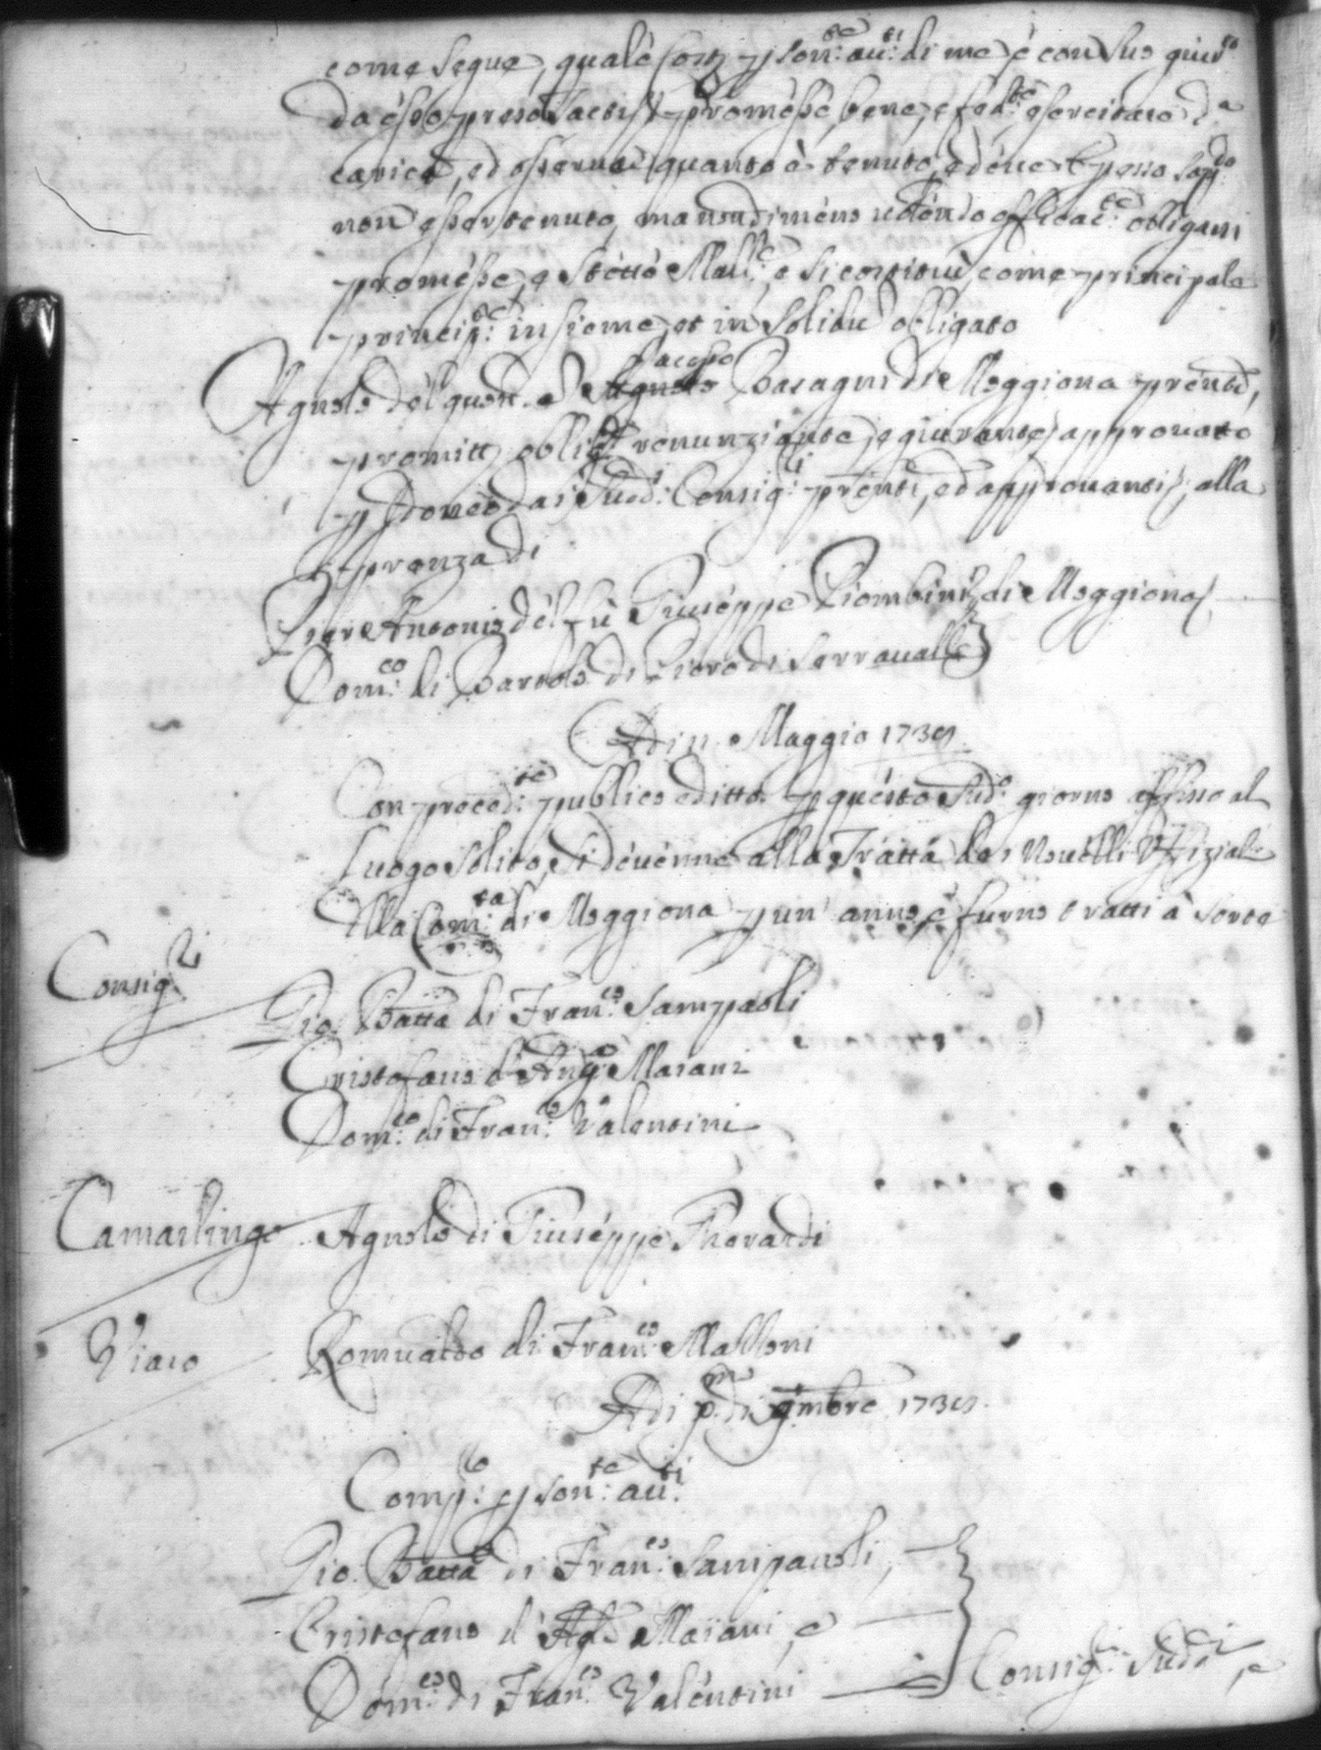 come segue, quale Cost: p son:te au:ti di me e con suo giur:to
da esso preso tactis promesse bene, e fed:te esercitare d.a
carica, ed osservar quanto è tenuto, e deve E per esso sap:do
non esser tenuto, ma nondimeno volendo efficac:te obligarsi
promesse, e stette Mall:e, e si costituì come principale
princip:te insieme, et in solidu obligato
Agnolo del quon. Jacopo Baragni di Moggiona prente,
promitt: oblig: renunziante, e giurante, approvato
p Idoneo dai Sud:i Consig:li prenti, ed approvanti, alla
prenza di
Pier Antonio del fu Giuseppe Piombini di Moggiona
Dom:co di Bartolo di Piero di Serravalle
Adi n. Maggio 1739
Con preced:te publico editto p questo Sud:o giorno affisso al
Luogo solito, si devenne alla Tratta de i Novelli Uffiziali
della Com:ta di Moggiona p un' anno, e furno tratti à sorte
Consig:li
Gio: Batta di Fran:co Sampaoli
Cristofano d'Ang:o Maiani
Dom:co di Fran:co Valentini
Camarlingo Agnolo di Giuseppe Gherardi
Viaio Romualdo di Fran:co Massoni
Adi p:mo di 9mbre 1739
Comp:o p son:te au:ti
Gio: Batta di Fran:co Sampaoli,
Cristofano d'Ag:o Maiani, e
Dom:co di Fran:co Valentini
Consig:li Sud:i, e